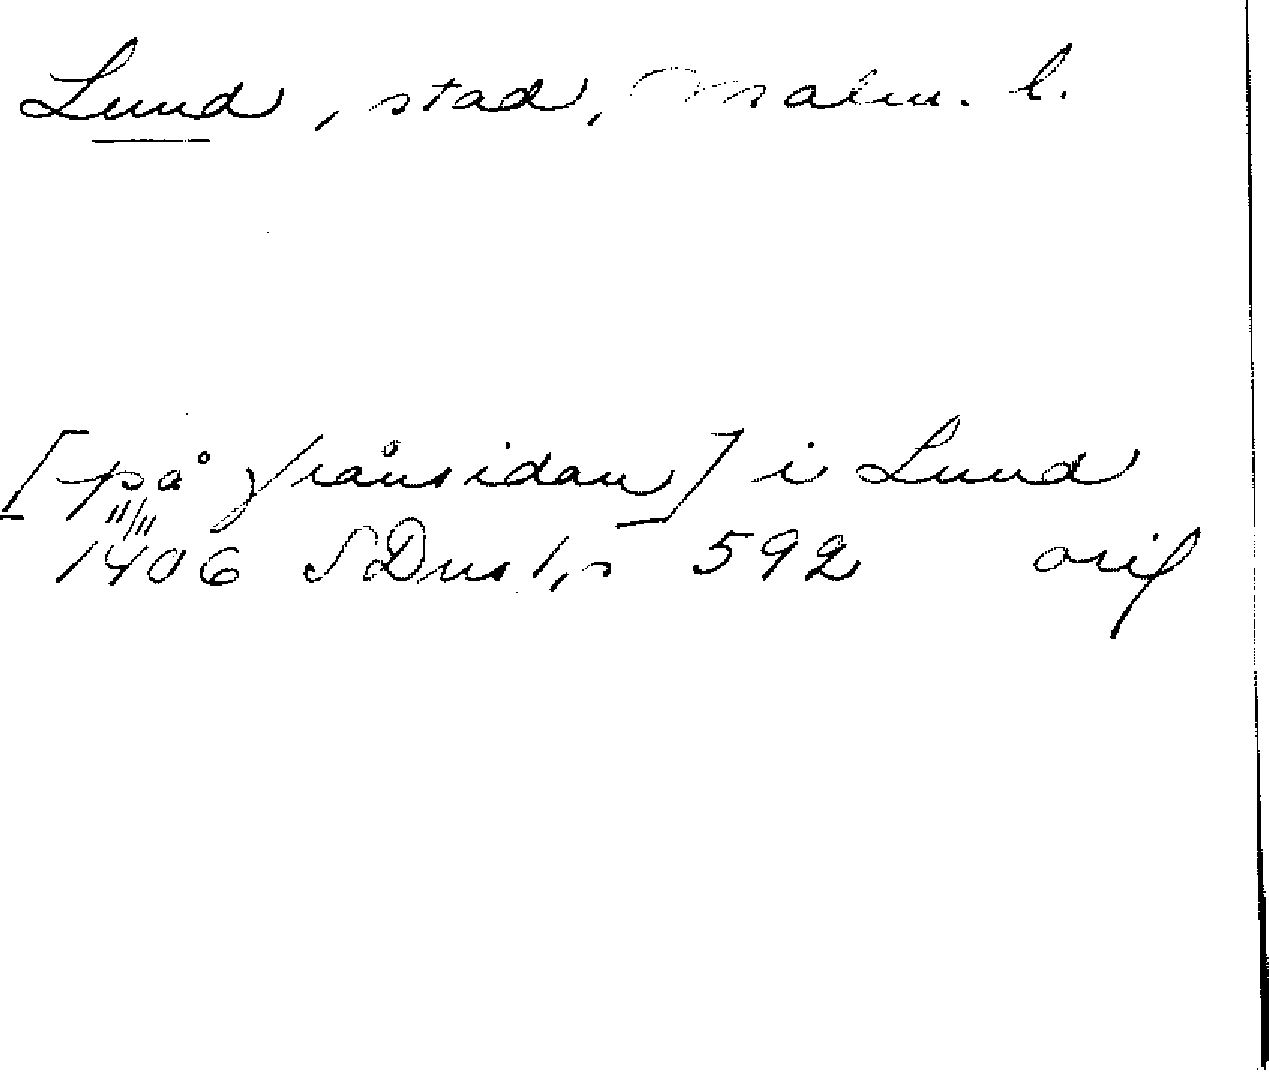 Lund, stad, Malm. l.
[på frånsidan] i Lund
11/11
1406 SDns 1, s 592 orig